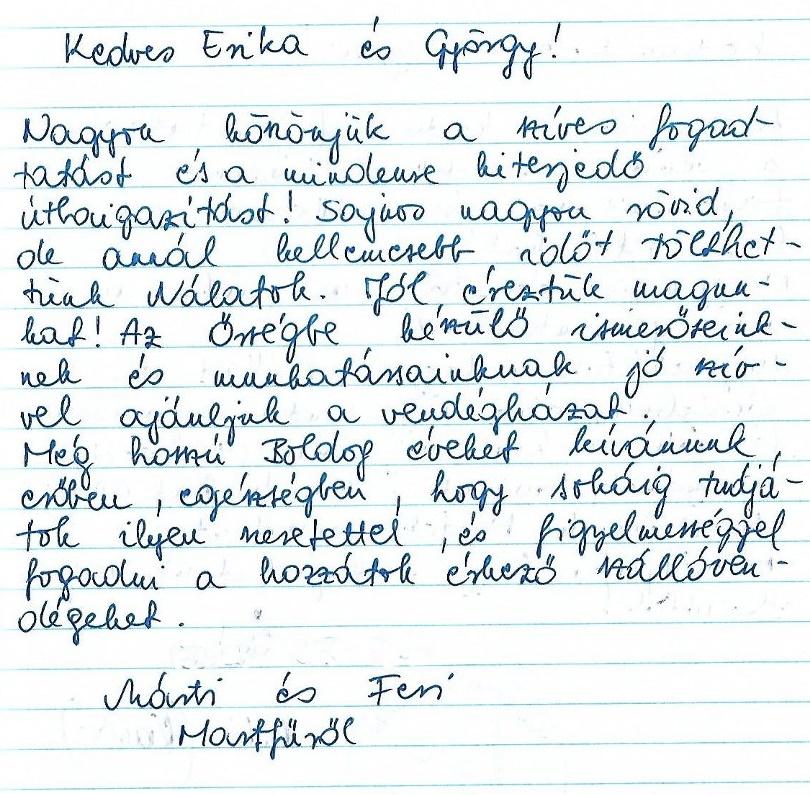 Kedves Erika és György!
Nagyon köszönjük a szíves fogad-
tatást és a mindenre kiterjedő
útbaigazítást! Sajnos nagyon rövid,
de annál kellemesebb időt tölthet-
tünk Nálatok. Jól éreztük magun-
kat! Az Őrségbe készülő ismerőseink-
nek és munkatársainknak jó szív-
vel ajánljuk a vendégházat.
Még hosszú Boldog éveket kívánunk,
erőben, egészségben, hogy sokáig tudjá-
tok ilyen szeretettel, és figyelmességgel
fogadni a hozzátok érkező szállóven-
dégeket.
Márti és Feri
Martfűről